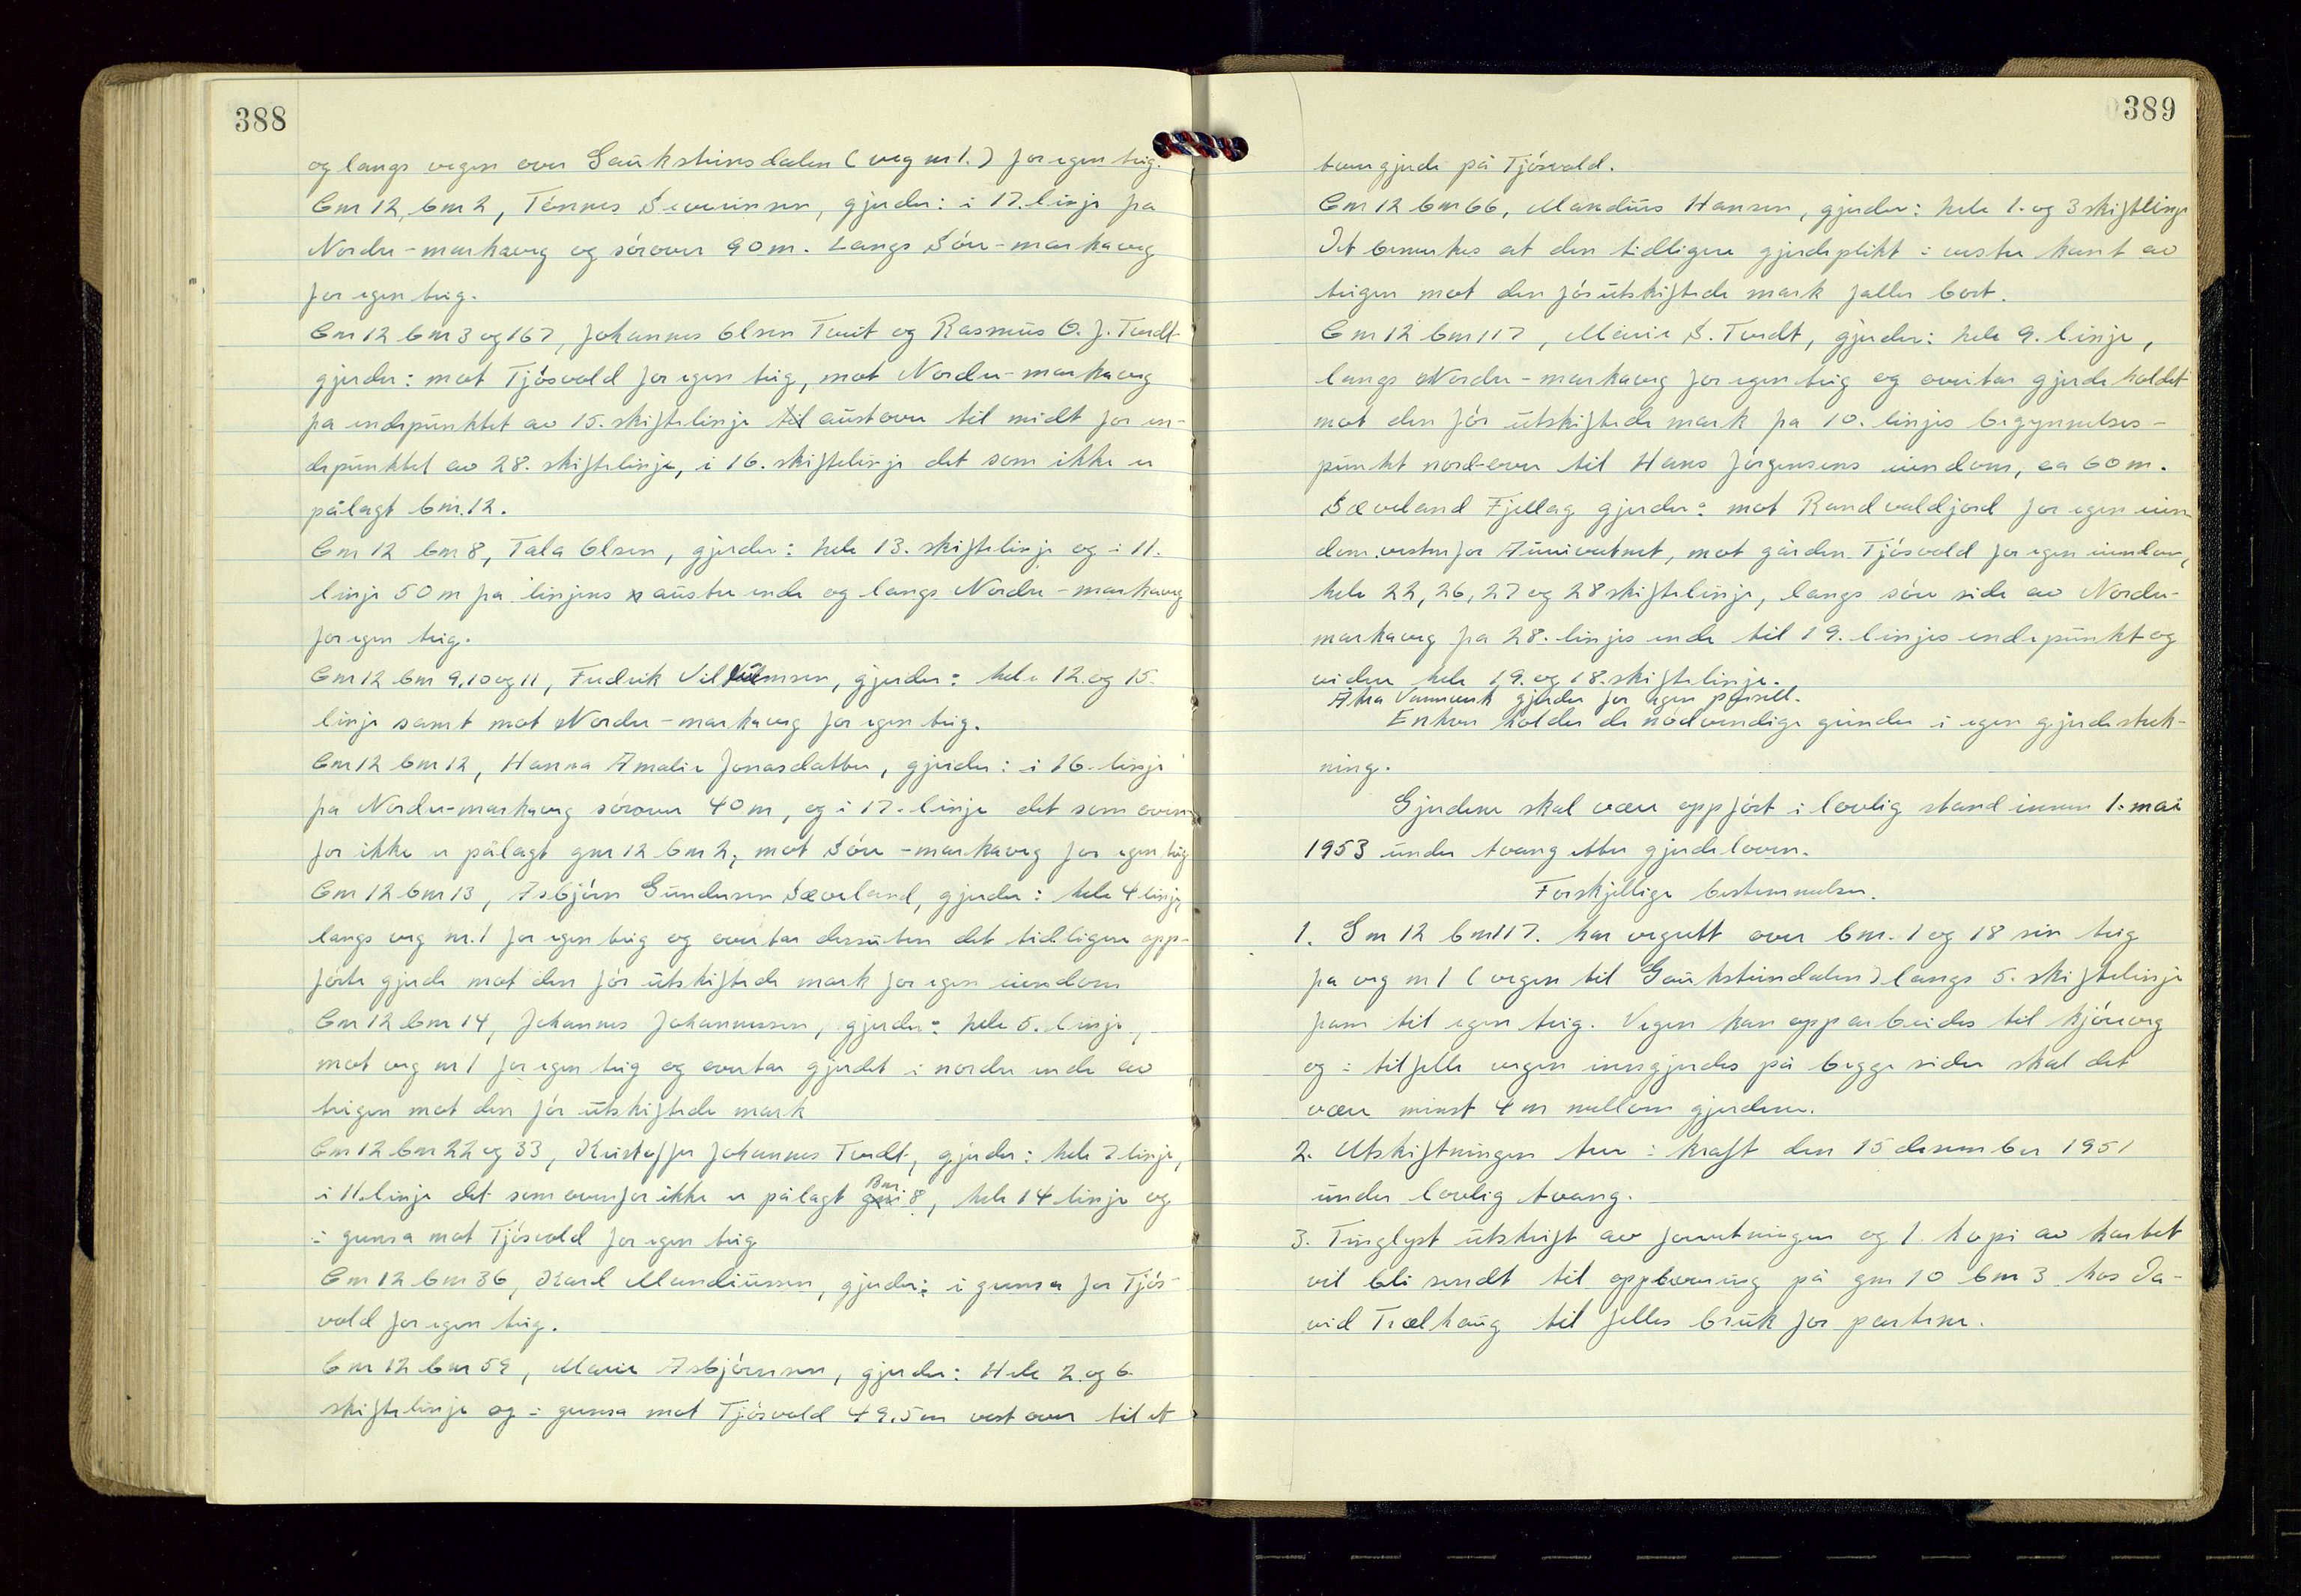 388
og langs vegen over Gauksteinsdalen (veg nr 1.) for egen teig.
Gnr 12, bnr 2, Tønnes Severinsen, gjerder: i 17. linje fra
Nordre-markaveg og sørover 90 m. Langs Søre-markaveg
for egen teig.
Gnr 12 bnr 3 og 167, Johannes Olsen Tveit og Rasmus O. J. Tvedt
gjerder: mot Tjøsvold for egen teig, mot Nordre-markaveg
fra endepunktet av 15. skiftelinje til austover til midt for en-
depunktet av 28. skiftelinje, i 16. skiftelinje det som ikke er
pålagt bnr. 12.
Gnr 12 bnr 8, Tala Olsen, gjerder: hele 13. skiftelinje og i 11.
linje 50 m fra linjens austre ende og langs Nordre-markaveg
for egen teig.
Gnr 12 bnr 9, 10 og 11, Fredrik Vilhelmsen, gjerder: hele 12. og 15.
linje samt mot Nordre-markaveg for egen teig.
Gnr 12 bnr 12, Hanna Amalie Jonasdatter, gjerder: i 16. linje
fra Nordre-markaveg sørover 40 m, og i 17. linje det som oven-
for ikke er pålagt gnr 12 bnr 2, mot Søre-markaveg for egen teig
Gnr 12 bnr 13, Asbjørn Gundersen Sæveland, gjerder: hele 4 linje,
langs veg nr. 1 for egen teig og overtar dessuten det tidligere opp-
førte gjerde mot den før utskiftede mark for egen eiendom
Gnr 12 bnr 14, Johannes Johannessen, gjerder: hele 5. linje,
mot veg nr 1 for egen teig og overtar gjerdet i nordre ende av
teigen mot den før utskiftede mark
Gnr 12 bnr 22 og 33, Kristoffer Johannes Tvedt, gjerder: hele 7 linje,
i 11. linje det som ovenfor ikke er pålagt gnr Bnr. 8, hele 14 linje og
i grensa mot Tjøsvold for egen teig
Gnr 12 bnr 36, Karl Mandiussen, gjerder: i grensa for Tjøs-
vold for egen teig.
Gnr 12 bnr 59, Marie Asbjørnsen, gjerder: Hele 2. og 6.
skiftelinje og i grensa mot Tjøsvold 49.5 m vestover til et
389
tverrgjerde på Tjøsvold.
Gnr 12 bnr 66, Mandius Hansen, gjerder: hele 1. og 3 skiftlinje
Det bemerkes at den tidligere gjerdeplikt i vestre kant av
teigen mot den før utskiftede mark faller bort.
Gnr 12 bnr 117, Marie S. Tvedt, gjerder: hele 9. linje,
langs Nordre-markaveg for egen teig og overtar gjerdeholdet
mot den før utskiftede mark fra 10. linjes begynnelses-
punkt nord-over til Hans Jørgensens eiendom, ca 60 m.
Sæveland Fjellag gjerder: mot Randvoldjord for egen eien
dom vestenfor vatnet, mot gården Tjøsvold for egen eiendom,
hele 22, 26, 27 og 28 skiftelinje, langs søre side av Nordre-
markaveg fra 28. linjes ende til 19. linjes endepunkt og
videre hele 19. og 18. skiftelinje.
Åkra Vannverk gjerder for egen parsell.
Enhver holder de nødvendige grinder i egen gjerdestrek-
ning.
Gjerdene skal være oppført i lovlig stand innen 1. mai
1953 under tvang etter gjerdeloven.
Forskjellige bestemmelser.
1. Gnr 12 bnr 117. har vegrett over bnr. 1 og 18 sin teig
fra veg nr 1 (vegen til Gauksteindalen) langs 5. skiftelinje
fram til egen teig. Vegen kan opparbeides til kjøreveg
og i tilfelle vegen inngjerdes på begge sider skal det
være minst 4 m mellom gjerdene.
2. Utskiftningen trer i kraft den 15 desember 1951
under lovlig tvang.
3. Tinglyst utskrift av forretningen og 1. kopi av kartet
vil bli sendt til oppbevaring på gnr 10 bnr 3 hos Da-
vid Trælhaug til felles bruk for partene.